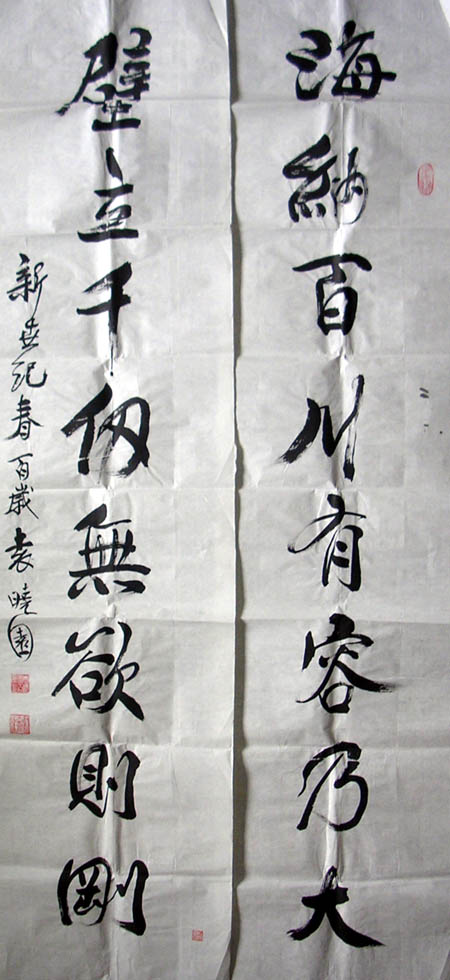 海納百川有容乃大
壁立千仞無欲則剛
新世紀春百歲袁曉園